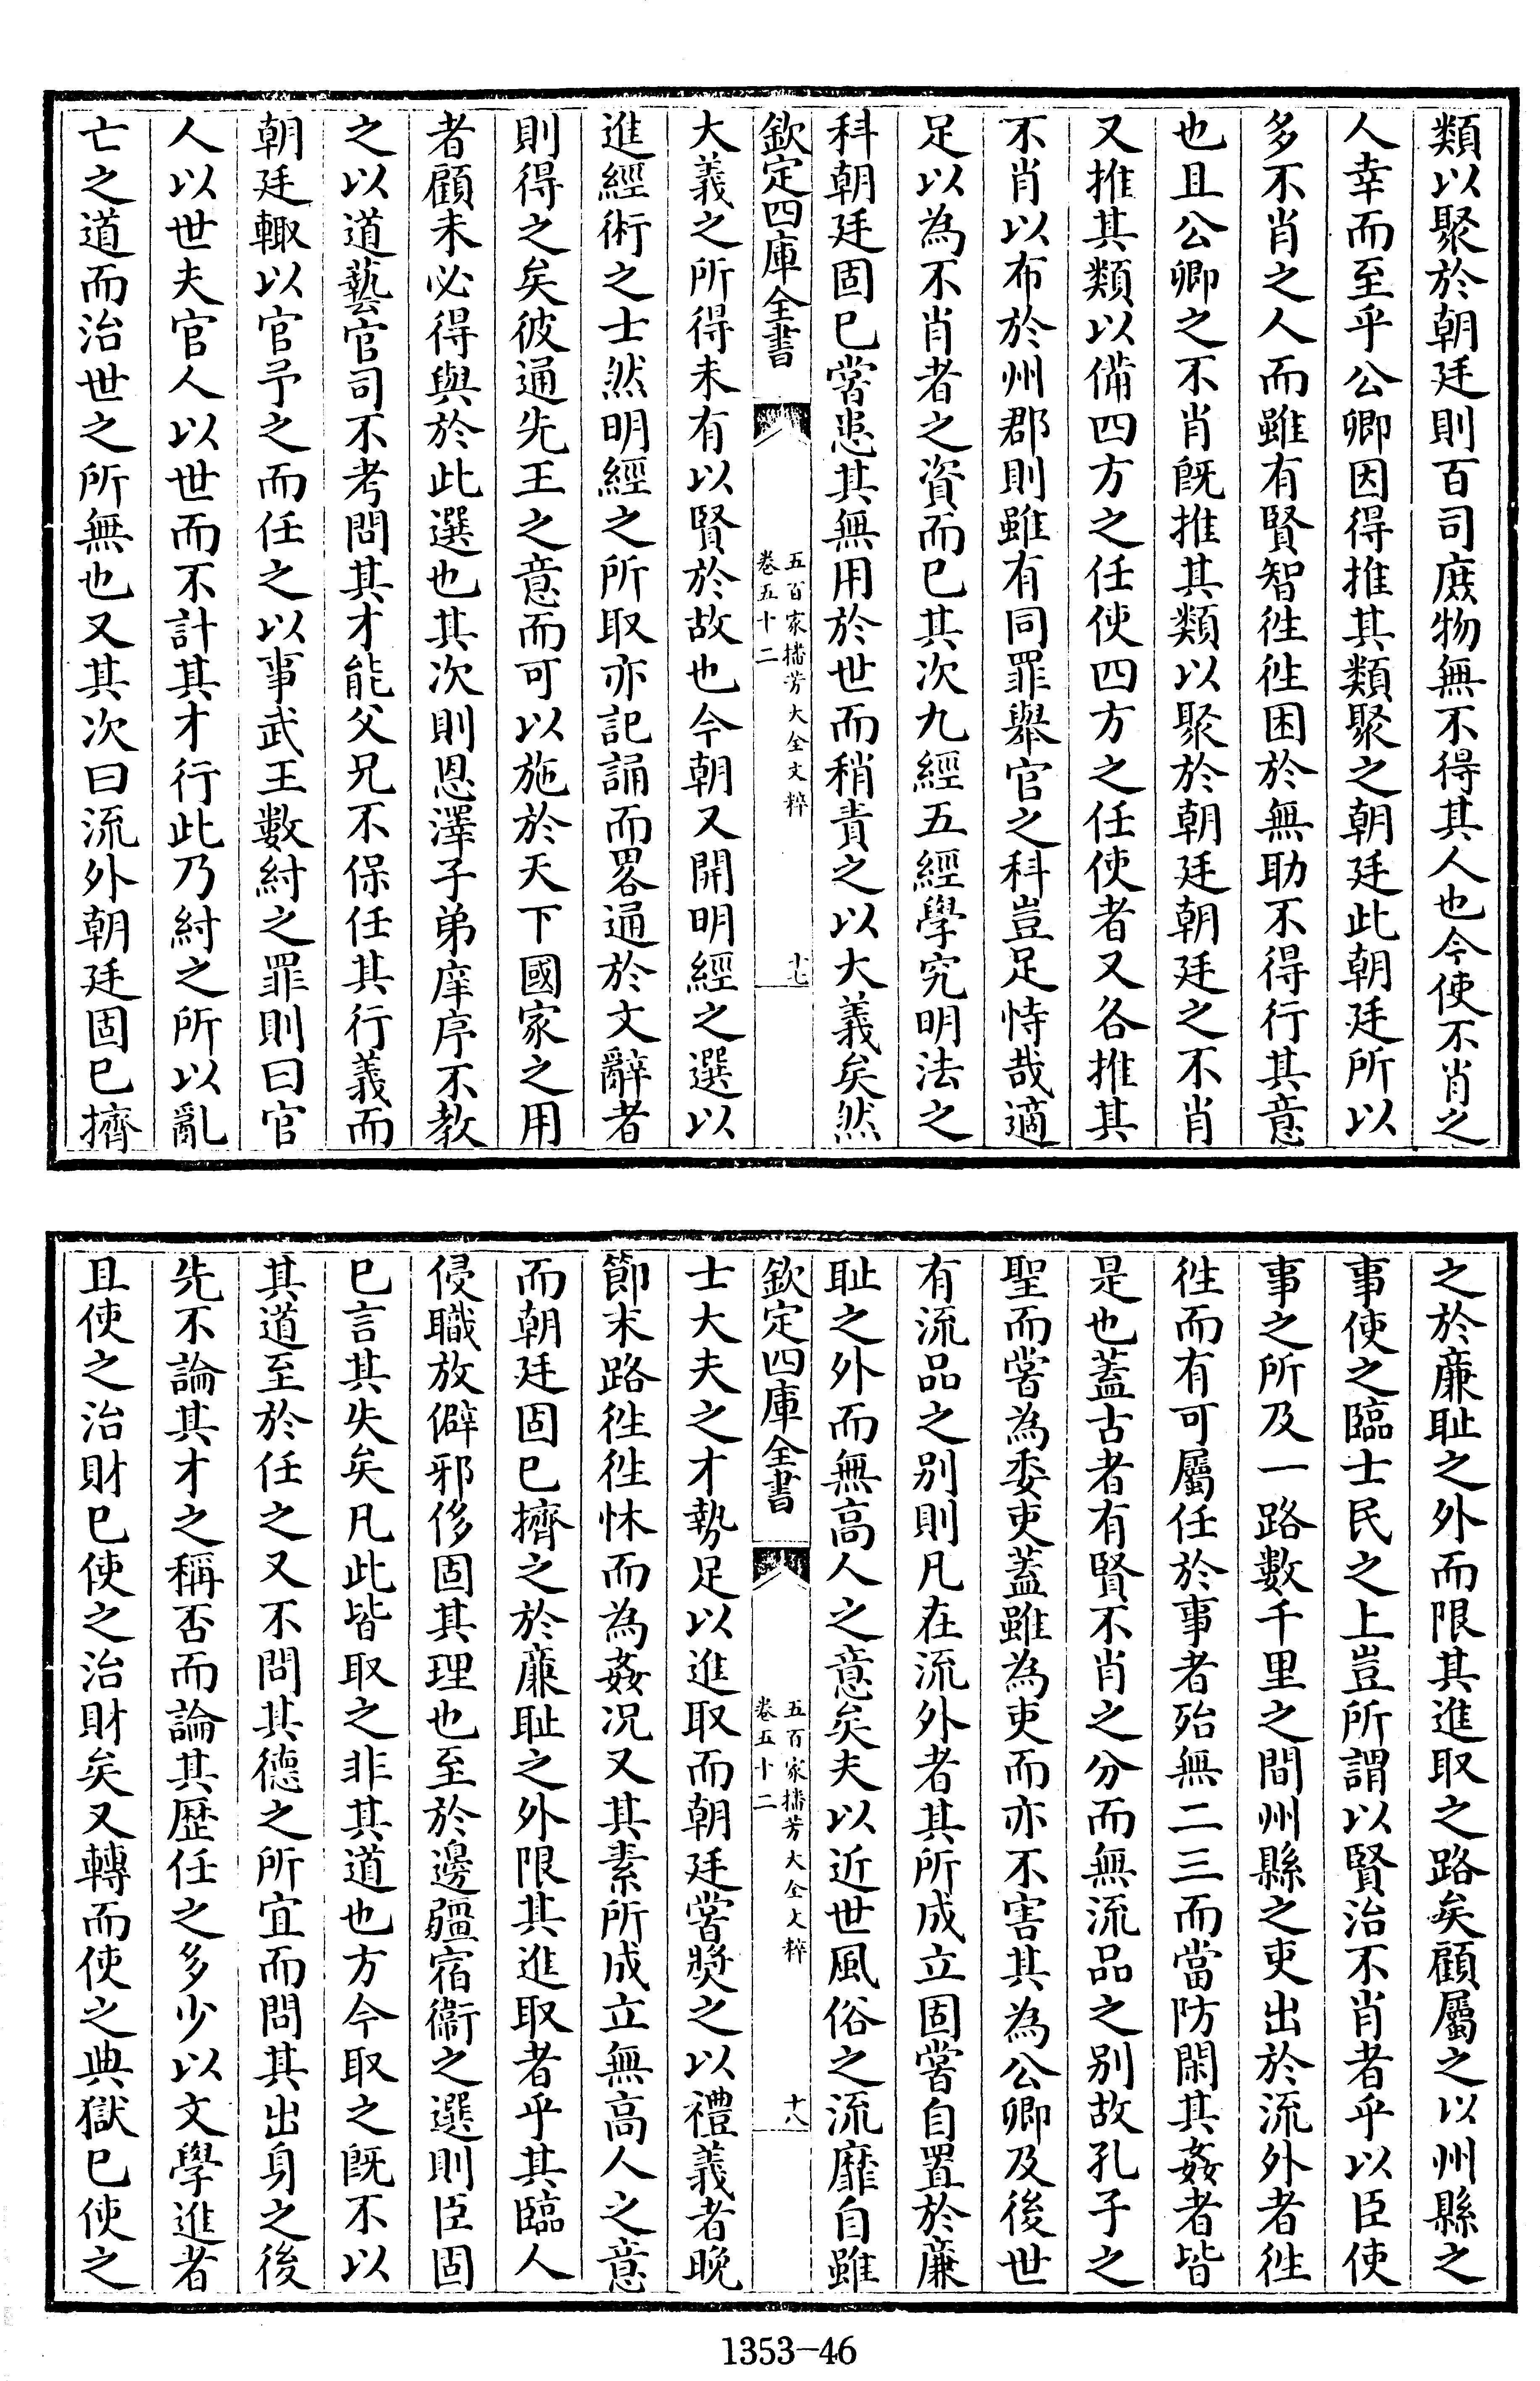 類以聚於朝廷則百司庻物無不得其人也今使不肖之
人幸而至乎公卿因得推其類聚之朝廷此朝廷所以
多不肖之人而雖有賢智徃徃困於無助不得行其意
也且公卿之不肖旣推其類以聚於朝廷朝廷之不肖
又推其類以備四方之任使四方之任使者又各推其
不肖以布於州郡則雖有同罪舉官之科豈足恃哉適
足以為不肖者之資而已其次九經五經學究明法之
科朝廷固已嘗患其無用於世而稍責之以大義矣然
欽定四庫全書
五百家播芳大全文粹
卷五十二
十七
大義之所得未有以賢於故也今朝又開明經之選以
進經術之士然明經之所取亦記誦而畧通於文辭者
則得之矣彼通先王之意而可以施於天下國家之用
者顧未必得與於此選也其次則恩澤子弟庠序不教
之以道藝官司不考問其才能父兄不保任其行義而
朝廷輙以官予之而任之以事武王數紂之罪則曰官
人以世夫官人以世而不計其才行此乃紂之所以亂
亡之道而治世之所無也又其次曰流外朝廷固已擠
之於亷耻之外而限其進取之路矣顧屬之以州縣之
事使之臨士民之上豈所謂以賢治不肖者乎以臣使
事之所及一路數千里之間州縣之吏出於流外者徃
徃而有可屬任於事者殆無二三而當防閑其姦者皆
是也蓋古者有賢不肖之分而無流品之别故孔子之
聖而嘗為委吏蓋雖為吏而亦不害其為公卿及後世
有流品之别則凡在流外者其所成立固嘗自置於亷
耻之外而無高人之意矣夫以近世風俗之流靡自雖
欽定四庫全書
五百家播芳大全文粹
卷五十二
十八
士大夫之才勢足以進取而朝廷嘗奬之以禮義者晚
節末路徃徃怵而為姦况又其素所成立無高人之意
而朝廷固已擠之於亷耻之外限其進取者乎其臨人
侵職放僻邪侈固其理也至於邊疆宿衞之選則臣固
已言其失矣凡此皆取之非其道也方今取之旣不以
其道至於任之又不問其德之所宜而問其出身之後
先不論其才之稱否而論其歴任之多少以文學進者
且使之治財已使之治財矣又轉而使之典獄已使之
1353-46